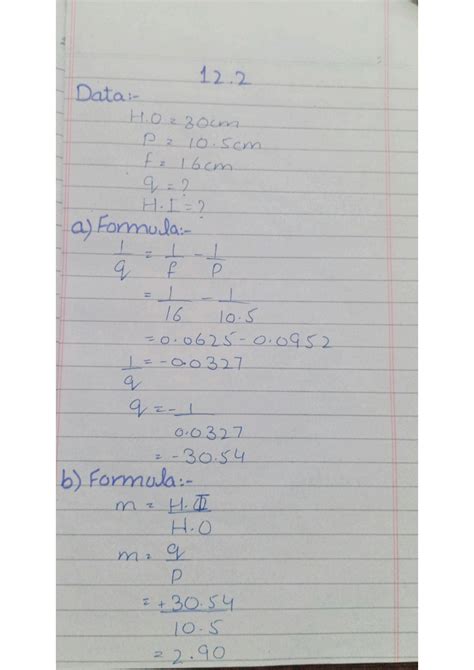 12.2
Data:-
H.O = 30cm
P = 10.5cm
f = 16cm
q = ?
H.I = ?
a) Formula:-
1/q = 1/f - 1/P
= 1/16 - 1/10.5
= 0.0625 - 0.0952
1/q = -0.0327
q = - 1/0.0327
= -30.54
b) Formula:-
m = H.I/H.O
m = q/P
= +30.54/10.5
= 2.90